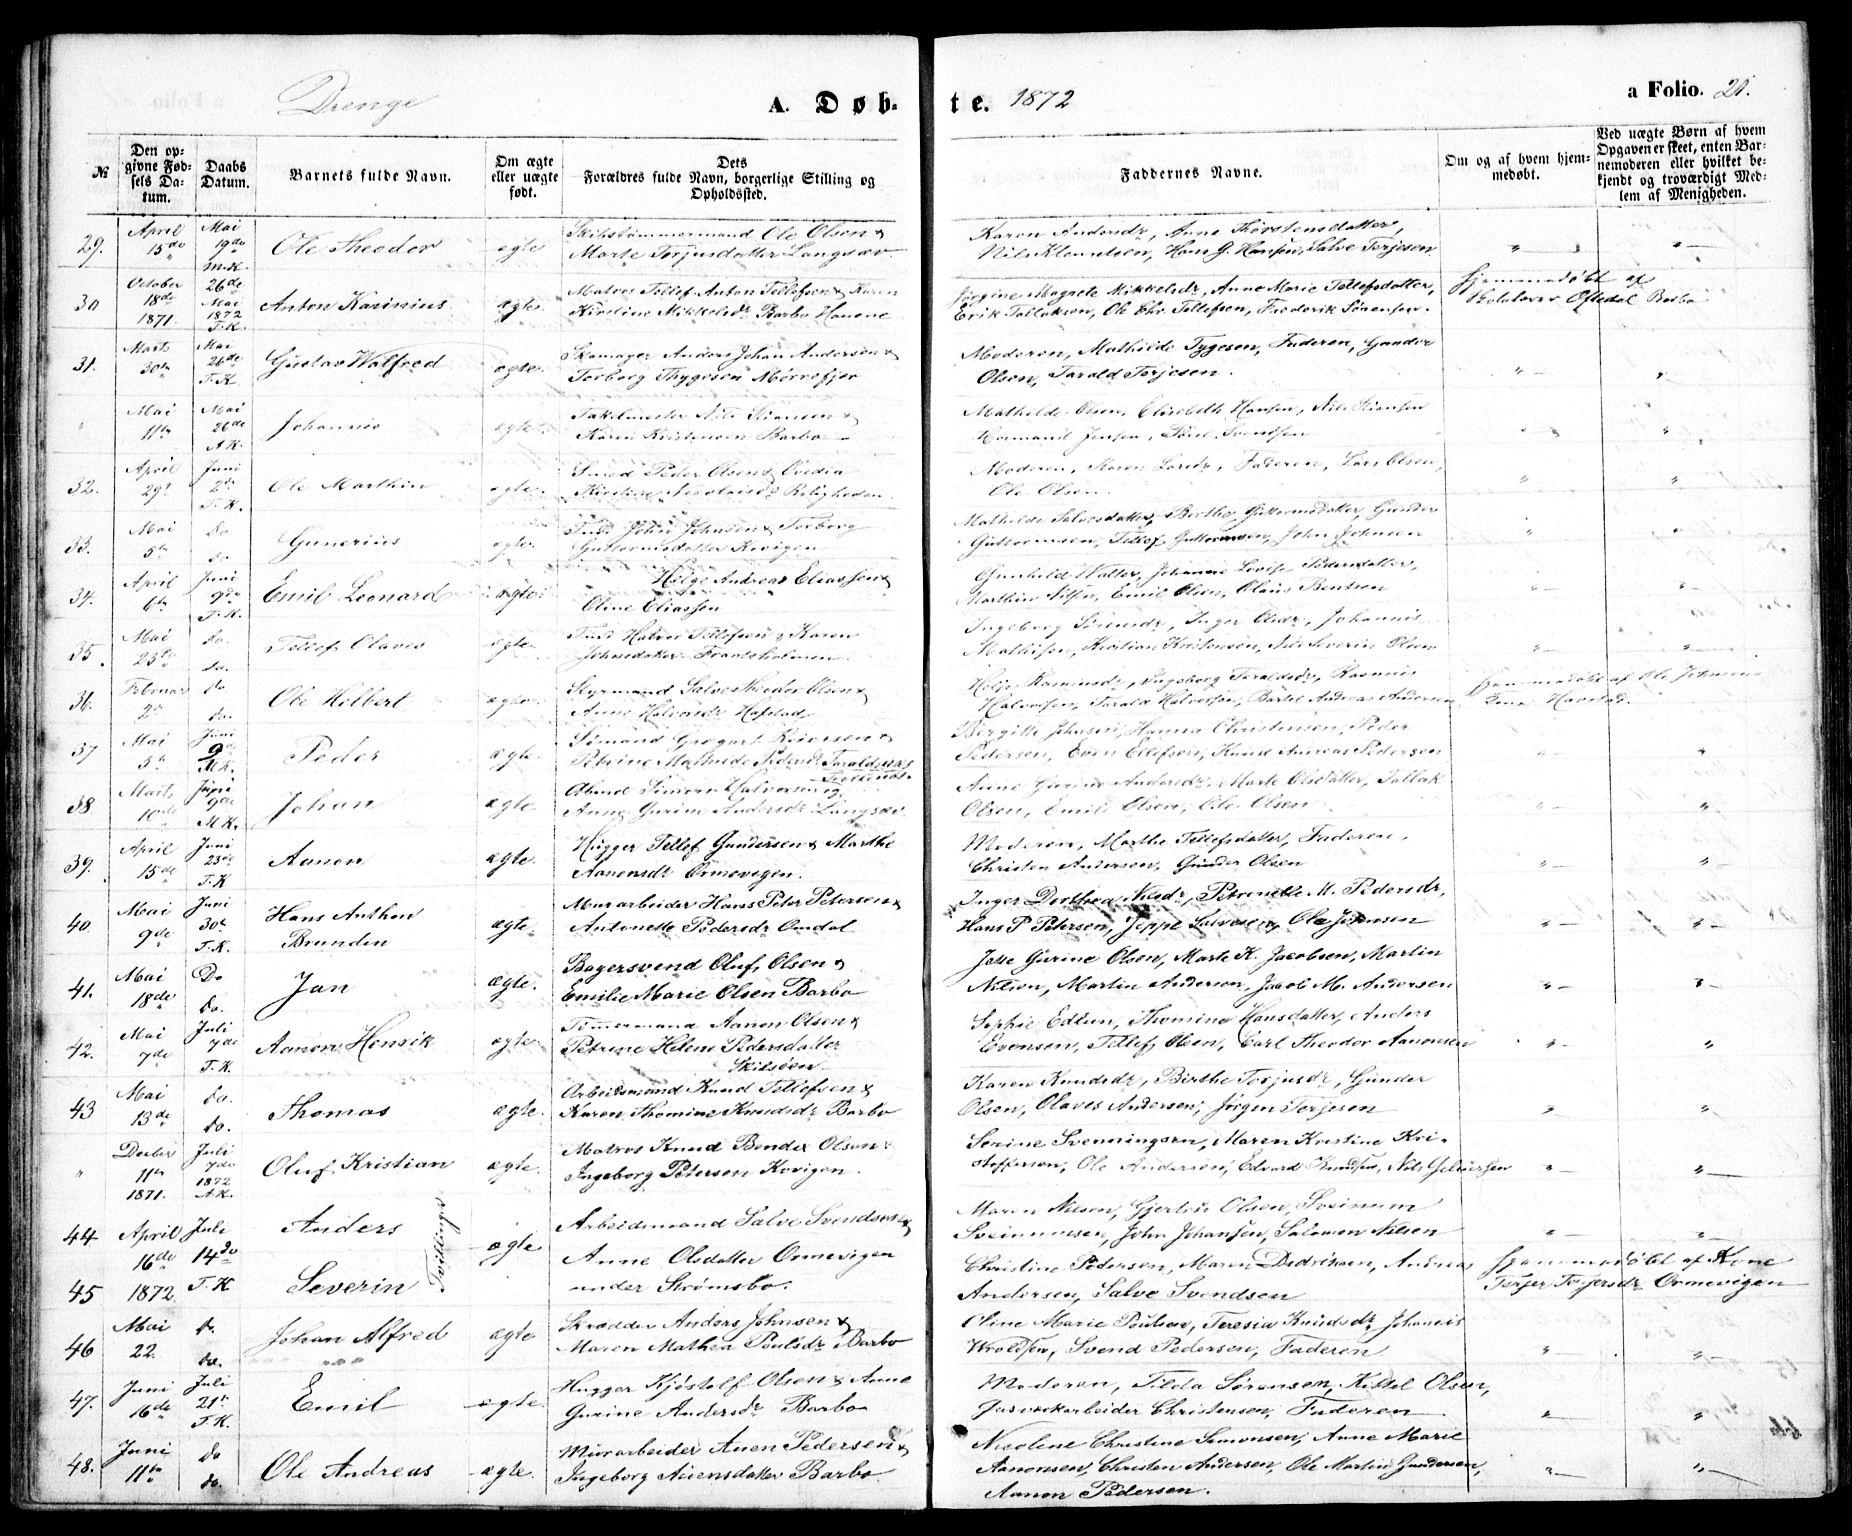 Drenge
A. Døb-
te. 1872
a Folio. 20.
№
Den op-
givne Fød-
sels Da-
tum.
Daabs
Datum.
Barnets fulde Navn.
Om ægte
eller uægte
født.
Dets
Forældres fulde Navn, borgerlige Stilling og
Opholdssted.
Faddernes Navne.
Om og af hvem hjem-
medøbt.
Ved uægte Børn af hvem
Opgaven er skeet, enten Bar-
nemoderen eller hvilket be-
kjendt og troværdigt Med-
lem af Menigheden.
29. April 15de Mai 19de M.K. Ole Theodor ægte
Skibstømmermand Ole Olsen &
Marte Torjusdatter Langsæv
Karen Andersdr, Anne Thorstensdatter,
Nils Klemetsen, Hans G. Hansen, Salve Terjesen
30 October 18de 1871. 26de Mai 1872 T.K. Anton Karinius ægte
Matros Tellef Anton Tellefsen & Karen
Kirstine Mikkelsdr Barbo Havene
Jørgine Magrete Mikkelsdr, Anne Marie Tellefsdatter,
Erik Tallaksen, Ole Chr. Tellefsen, Frederik Sørensen.
Hjemmedøbt af
Oftedal Barbo
31. Marts 30te Mai 26de T.K. Gustav Walfred ægte
Skomager Anders Johan Andersen &
Torborg Thygesen Mørrefjær
Moderen, Mathilde Tygesen, Faderen, Gunder
Olsen, Tarald Terjesen.
" Mai 11te Mai 26de A.K. Johannes ægte
Nils &
Karen Kristensen Barbo
Mathilde Olsen, Elisabeth Hansen, Nils
Hermand Jensen, Svendsen
32. April 29d Juni 2de T.K. Ole Marthin ægte
Smed Peder Olsen & Ovedia
Kirstine Nicolaisdr Roligheden
Moderen, Karen Larsdr, Faderen, Lars Olsen,
Ole Olsen.
33. Mai 5te Do do. Gunerius ægte
John Johnsen & Torborg
Guttormsdatter Kovigen
Mathilde Salvesdatter, Berthe Guttormsdatter, Gunder
Guttormsen, Tellef Guttormsen, John Johnsen
34. April 6te Juni 9de T.K. Emil Leonard ægte
Helge Andreas Eliassen &
Oline Eliassen
Gunhild Walter, Johanne Lovise Pedersdatter,
Marthin Nilsen, Emil Olsen, Olaus Bentsen
35. Mai 23de do. do. Tellef Olaves ægte
Halvor Tellefsen & Karen
Johnsdatter Frantsholmen
Ingeborg Sørensdr, Inger Olsdr, Johannis
Mathisen, Kristian Kristensen, Nils Severin Olsen
36. Februar 2de do do. Ole Hilbert ægte
Styrmand Salve Theodor Olsen &
Anne Halvorsdr Havstad
Helje Rasmusdr, Ingeborg Taraldsdr, Rasmus
Halvorsen, Tarald Halvorsen, Bertel Andreas Andersen
Hjemmedøbt af Ole Johnsens
Kone Havstad.
37 Mai 5te Juni 9de M.K. Peder ægte
Sømand Gregart Reiersen &
Petrine Mathilde Pedersdr Taraldsnæs
Tromøen
Birgitte Johnsen, Hanna Christensen, Peder
Pedersen, Even Ellefsen, Knud Andreas Pedersen
38 Marts 10de Juni 9de M.K. Johan ægte
Simon Halvorsen og
Anne Gurine Andersdr Langsæv
Anne Gurine Andersdr, Marte Olsdatter, Tallak
Olsen, Emil Olsen, Ole Olsen
39. April 15de Juni 23de T.K. Aanon ægte
Hugger Tellef Gundersen & Marthe
Aanonsdr Ormevigen.
Moderen, Marthe Tellefsdatter, Faderen,
Christen Andersen, Gunder Olsen
40. Mai 9de Juni 30te T.K. Hans Anthon
Brunden ægte
Murarbeider Hans Peter Petersen &
Antonette Pedersdr Omdal
Inger Dorthea Nilsdr, Petronelle M. Pedersdr,
Hans P Petersen, Jeppe Salvesen, Ole Johnsen
41. Mai 18de Do do. Jan ægte.
Bagersvend Oluf Olsen &
Emilie Marie Olsen Barbo
Jelle Gurine Olsen, Marte K. Jacobsen, Martin
Nilsen, Martin Andersen, Jacob M. Andersen
42. Mai 7de Juli 7de T.K. Aanon Henrik ægte
Tømmermand Aanon Olsen &
Petrine Helene Pedersdatter
Skilsøen
Sophie Edlun, Thomine Hansdatter, Anders
Evensen, Tellef Olsen, Carl Theodor Aanonsen
43 Mai 13de do. do. Thomas ægte.
Arbeidsmand Knud Tellefsen &
Karen Thomine Knudsdr Barbo
Karen Knudsdr, Birthe Torjusdr, Gunder
Olsen, Olaves Andersen, Jørgen Terjesen
" Decbr 11te 1871. Juli 7de 1872 A.K. Oluf Kristian ægte.
Matros Knud Bendix Olsen &
Ingeborg Petersen Kovigen.
Serine Svenningsen, Maren Kristine Kri-
stoffersen, Ole Andersen, Edvard Knudsen, Nils
44 April 16de Juli 14de Anders
Tvillinger ægte
Arbeidsmand Salve Svendsen &
Anne Olsdatter Ormevigen
Maren Nilsen, Gjertine Olsen, Sveinum
Sveinumsen, John Johansen, Salomon Nilsen
45 1872 T.K Severin
under Strømsbo.
Christine Pedersen, Maren Didriksen, Andreas
Andersen, Salve Svendsen
Hjemmedøbt af Kone
Terjer Terjersdr Ormevigen
46 Mai 22. do. do. Johan Alfred ægte
Skrædder Anders Johnsen &
Maren Mathea Poulsdr Barbo
Oline Marie Poulsen, Teresia Knudsdr, Johannis
Wroldsen, Svend Pedersen, Faderen
47. Juni 16de Juli 21de T.K. Emil ægte
Hugger Kjøstolf Olsen & Anne
Gurine Andersdr Barbo
Moderen, Tilda Sørensen, Kittel Olsen,
Gasværkarbeider Christensen, Faderen
48. Juni 11te do do. Ole Andreas ægte.
Murarbeider Auen Pedersen &
Ingeborg Auensdatter Barbo
Nicoline Christine Simonsen, Anne Marie
Aanonsen, Christen Andersen, Ole Martin Gundersen,
Aanon Pedersen.